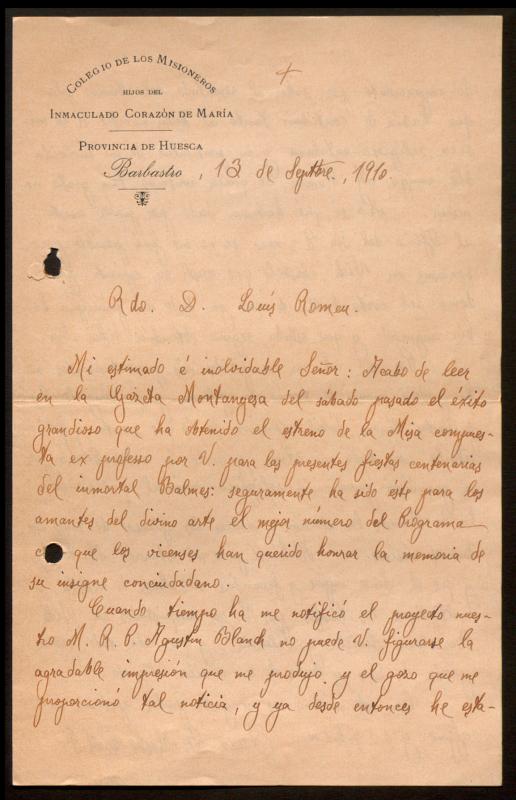 COLEGIO DE LOS MISIONEROS
HIJOS DEL
INMACULADO CORAZÓN DE MARÍA
PROVINCIA DE HUESCA
Barbastro, 13 de Septbre., 1910.
Rdo. D. Luís Romeu.
Mi estimado é inolvidable Señor: Acabo de leer
en la Gazeta Montanyesa del sábado pasado el éxito
grandioso que ha obtenido el estreno de la Misa compues-
ta ex professo por V. para las presentes fiestas centenarias
del inmortal Balmes: seguramente ha sido éste para los
amantes del divino arte el mejor número del Programa
con que los vicenses han querido honrar la memoria de
su insigne conciudadano.
Cuando tiempo ha me notificó el proyecto nues-
tro M. R. P. Agustín Blanch no puede V. figurarse la
agradable impresión que me produjo y el gozo que me
proporcionó tal noticia, y ya desde entonces he esta-